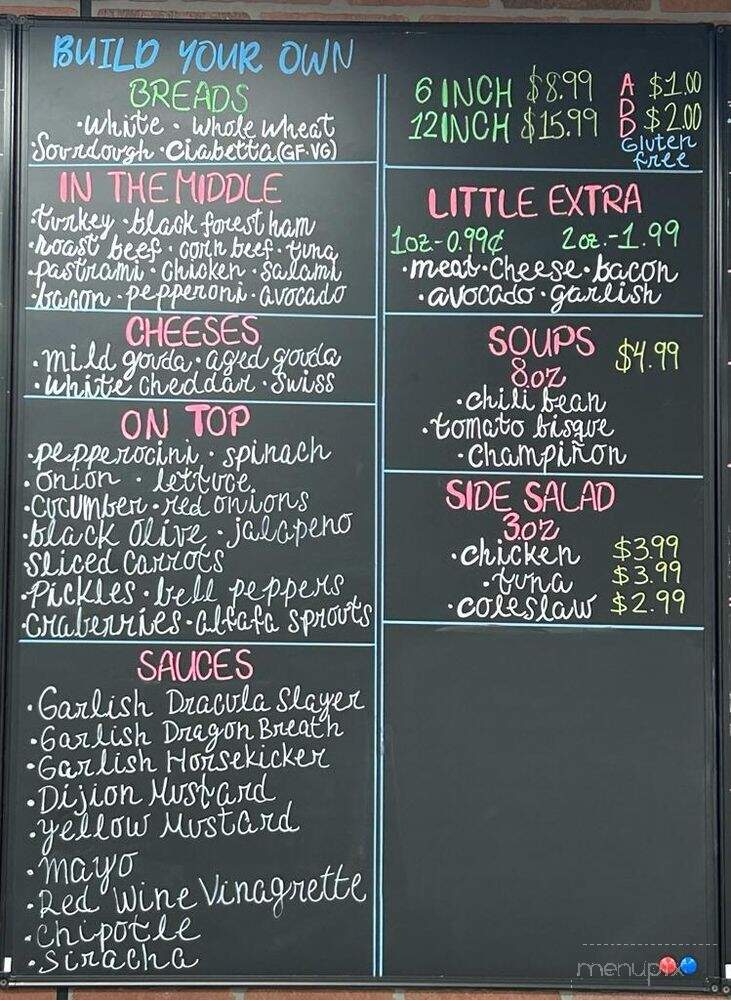 BUILD YOUR OWN
BREADS
·White · Whole Wheat
·Sourdough ·Ciabetta (GF·VG)
IN THE MIDDLE
turkey ·black forest ham
·roast beef · corn beef · tuna
·pastrami · Chicken · Salami
·bacon · pepperoni · avocado
CHEESES
·mild gouda · aged gouda
·white cheddar · Swiss
ON TOP
·pepperocini · spinach
·onion · lettuce
·cucumber · red onions
·black olive · jalapeno
·Sliced Carrots
·Pickles · bell peppers
·Craberries · alfafa sprouts
SAUCES
·Garlish Dracula Slayer
·Garlish Dragon Breath
·Garlish Horsekicker
·Dijion Mustard
·yellow Mustard
·mayo
·Red Wine Vinagrette
·Chipotle
·Siracha
6 INCH $8.99
12INCH $15.99
ADD
$1.00
$2.00
Gluten
free
LITTLE EXTRA
1oz-0.99¢ 2oz.-1.99
·meat·Cheese·bacon
·avocado·garlish
SOUPS $4.99
8oz
·chili bean
·tomato bisque
·Champiñon
SIDE SALAD
3oz
·chicken $3.99
·tuna $3.99
·coleslaw $2.99
menupix